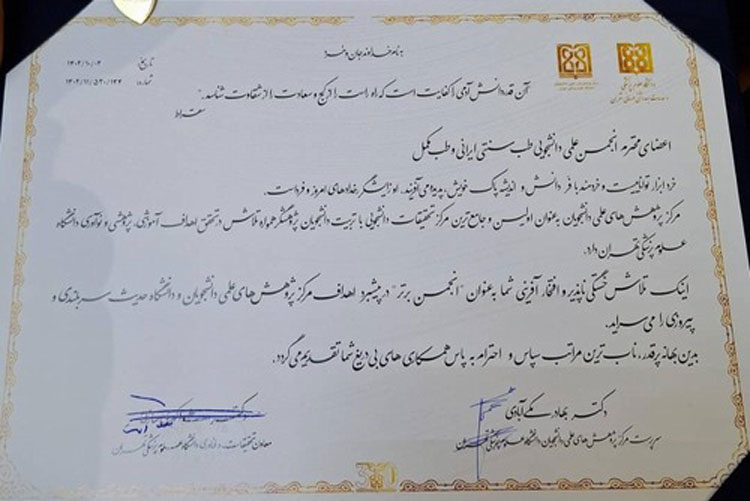 به نام خداوند جان و خرد
تاریخ: ۱۴۰۲/۱۰/۰۴
شماره: ۱۴۰۲/۱۱/۵۳۰/۱۲۴
دانشگاه علوم پزشکی
و خدمات بهداشتی درمانی تهران
آن قدر دانش آدمی را کفایت است که راه راست را از کج و سعادت را از شقاوت شناسد."
سقراط
اعضای محترم انجمن علمی دانشجویی طب سنتی ایرانی و طب مکمل
خرد ابزار تواناییست و خردمند با فر دانش و اندیشه پاک خویش، پدیده می آفریند. او زایشگر رخدادهای امروز و فرداست.
مرکز پژوهش های علمی دانشجویان به عنوان اولین و جامع ترین مرکز تحقیقات دانشجویی با تربیت دانشجویان پژوهشگر همواره تلاش در تحقق اهداف آموزشی، پژوهشی و نوآوری دانشگاه
علوم پزشکی تهران دارد.
اینک تلاش خستگی ناپذیر و افتخار آفرینی شما به عنوان "انجمن برتر" در پیشبرد اهداف مرکز پژوهش های علمی دانشجویان و دانشگاه حدیث سربلندی و
پیروزی را می سراید.
بدین بهانه پر قدر، ناب ترین مراتب سپاس و احترام به پاس همکاری های بی دریغ شما تقدیم می گردد.
دکتر بهادر مکی آبادی
سرپرست مرکز پژوهش های علمی دانشجویان دانشگاه علوم پزشکی تهران
دکتر
معاون تحقیقات و فناوری دانشگاه علوم پزشکی تهران